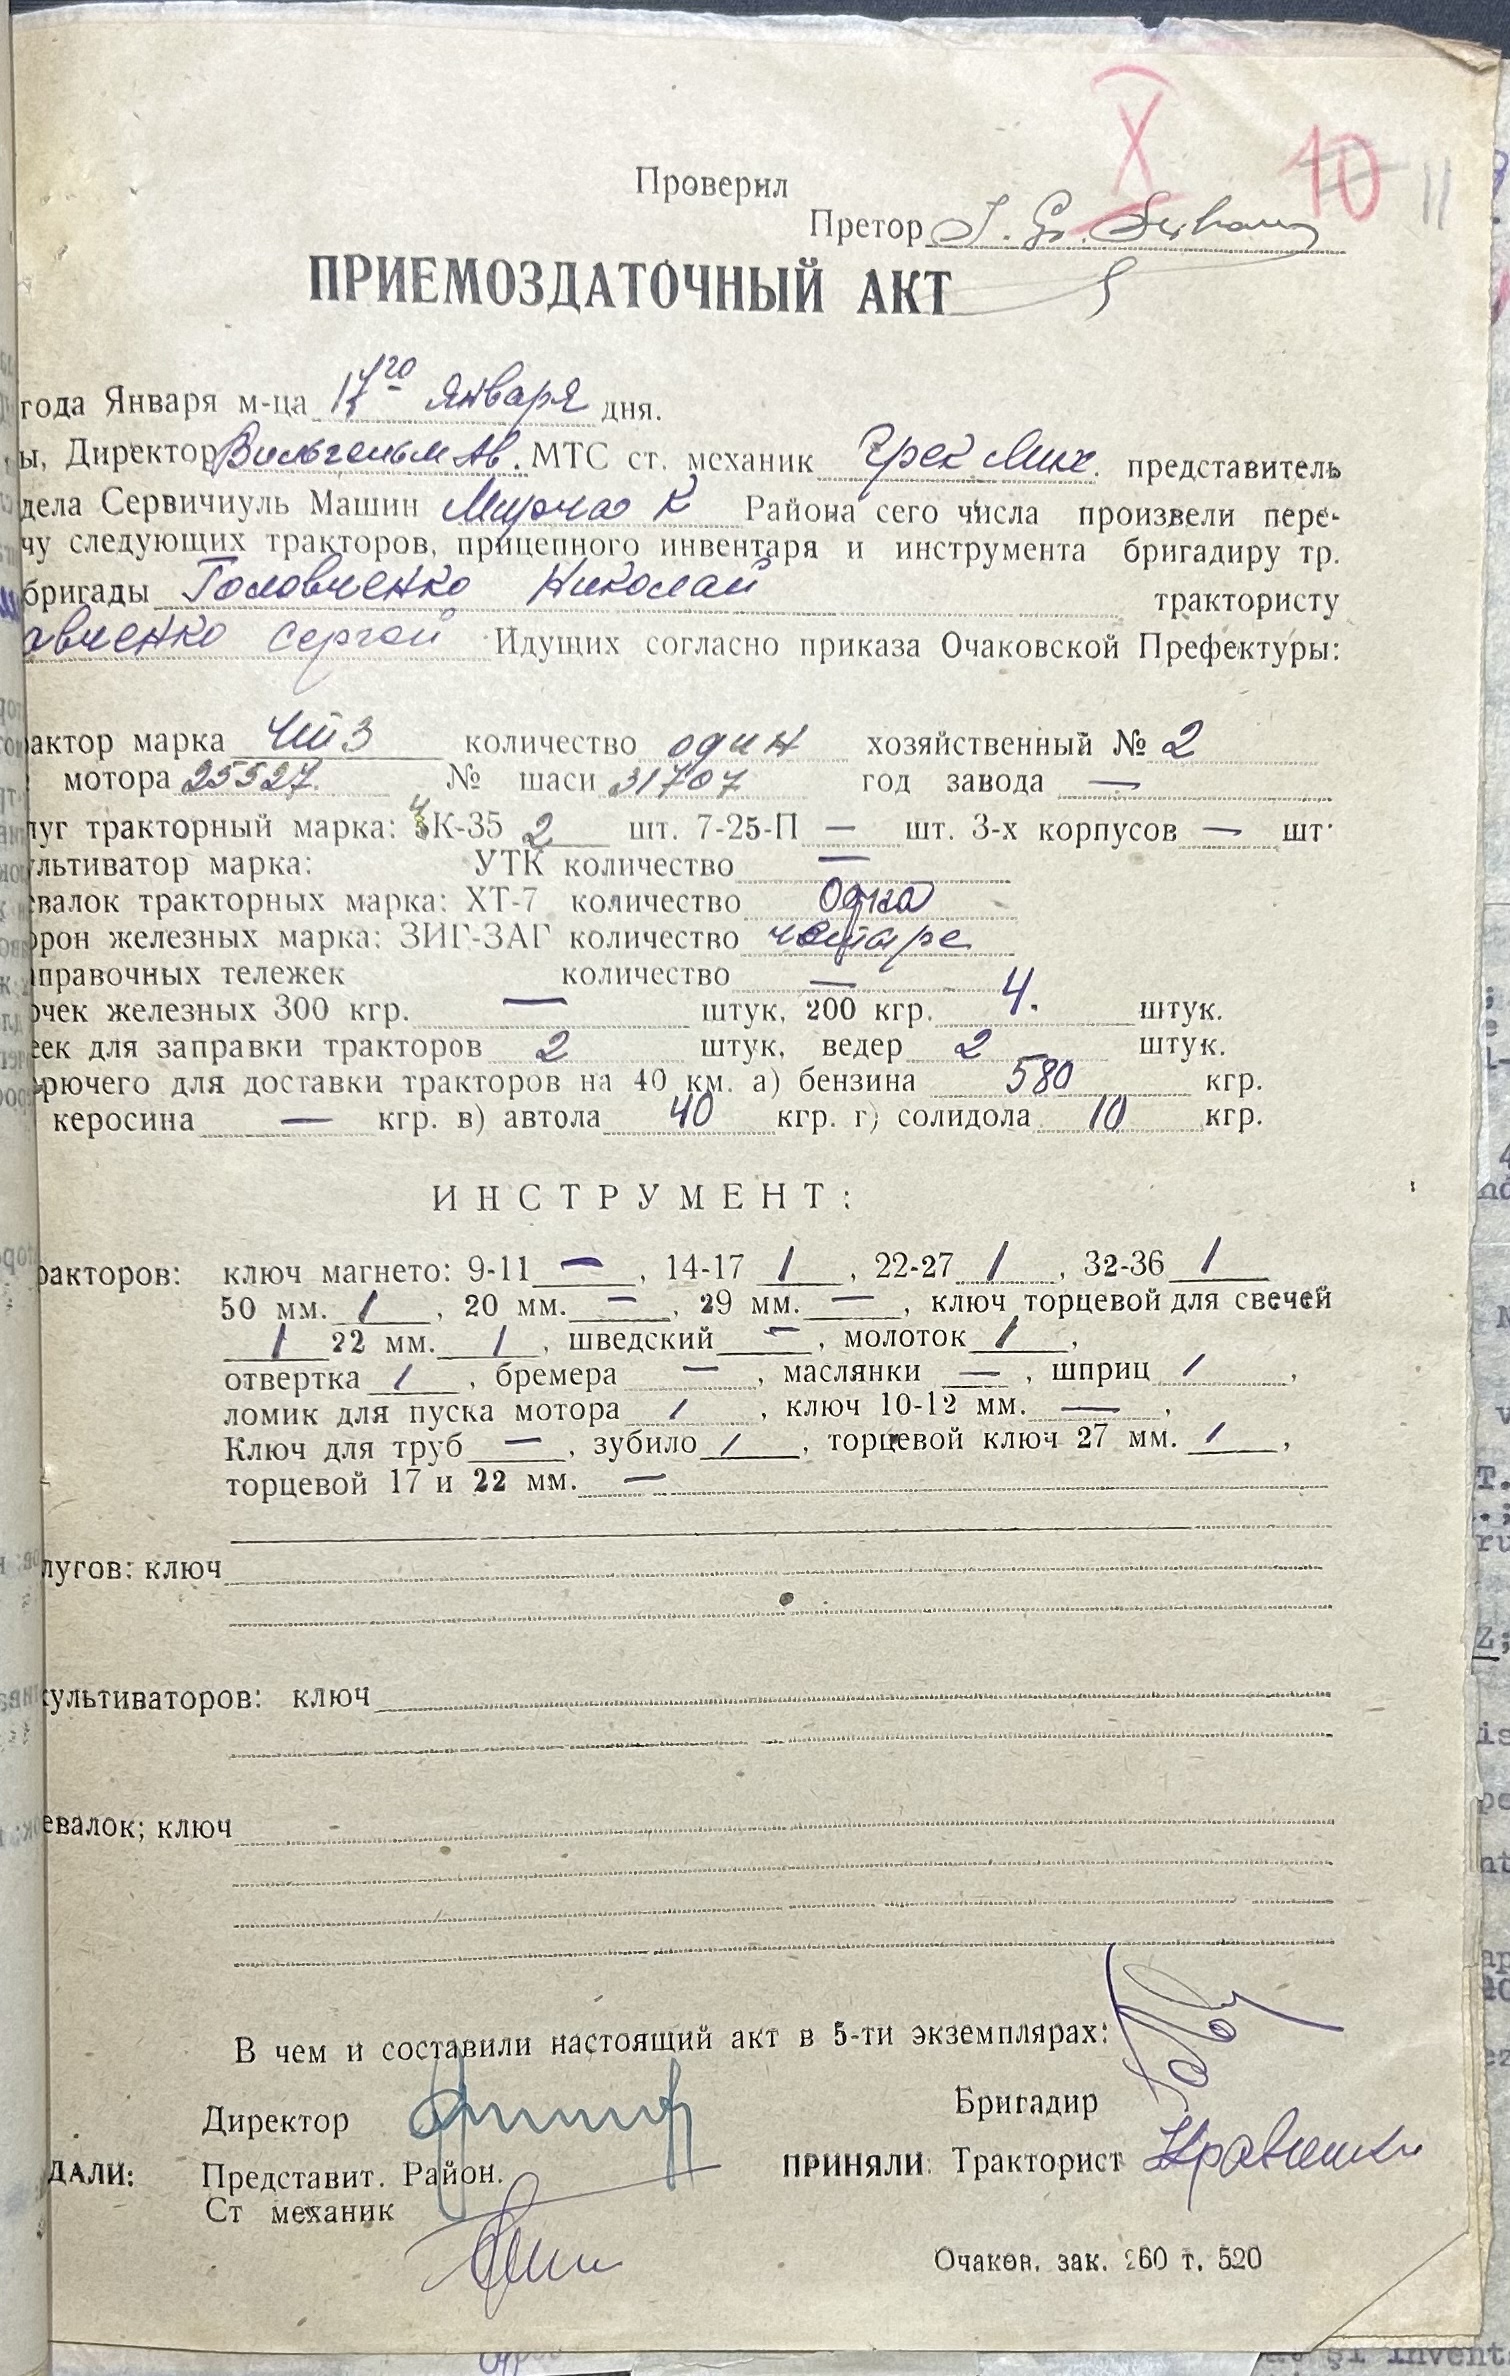 X 10 11
Проверил
Претор
ПРИЕМОЗДАТОЧНЫЙ АКТ
года Января м-ца 17го января дня.
ы, Директор Вильгельм Ав. МТС ст. механик Грек Мих. представитель
дела Сервичиуль Машин Мирча К Района сего числа произвели пере-
чу следующих тракторов, прицепного инвентаря и инструмента бригадиру тр.
бригады Головченко Николай трактористу
авченко Сергей Идущих согласно приказа Очаковской Префектуры:
актор марка ЧТЗ количество один хозяйственный № 2
мотора 25527. № шаси 31707 год завода —
луг тракторный марка: 4К-35 2 шт. 7-25-П — шт. 3-х корпусов — шт.
льтиватор марка: УТК количество —
евалок тракторных марка: ХТ-7 количество Одна
орон железных марка: ЗИГ-ЗАГ количество четыре
правочных тележек количество —
очек железных 300 кгр. — штук, 200 кгр. 4. штук.
еек для заправки тракторов 2 штук, ведер 2 штук.
рючего для доставки тракторов на 40 км. а) бензина 580 кгр.
керосина — кгр. в) автола 40 кгр. г) солидола 10 кгр.
ИНСТРУМЕНТ:
ракторов: ключ магнето: 9-11 — , 14-17 / , 22-27 / , 32-36 /
50 мм. / , 20 мм. — , 29 мм. — , ключ торцевой для свечей
/ 22 мм. / , шведский — , молоток / ,
отвертка / , бремера — , маслянки — , шприц / ,
ломик для пуска мотора / , ключ 10-12 мм. — ,
Ключ для труб — , зубило / , торцевой ключ 27 мм. / ,
торцевой 17 и 22 мм. —
лугов: ключ
культиваторов: ключ
евалок; ключ
В чем и составили настоящий акт в 5-ти экземплярах:
Директор
Бригадир
ДАЛИ: Представит. Район. ПРИНЯЛИ: Тракторист
Ст механик
Очаков, зак. 260 т. 520